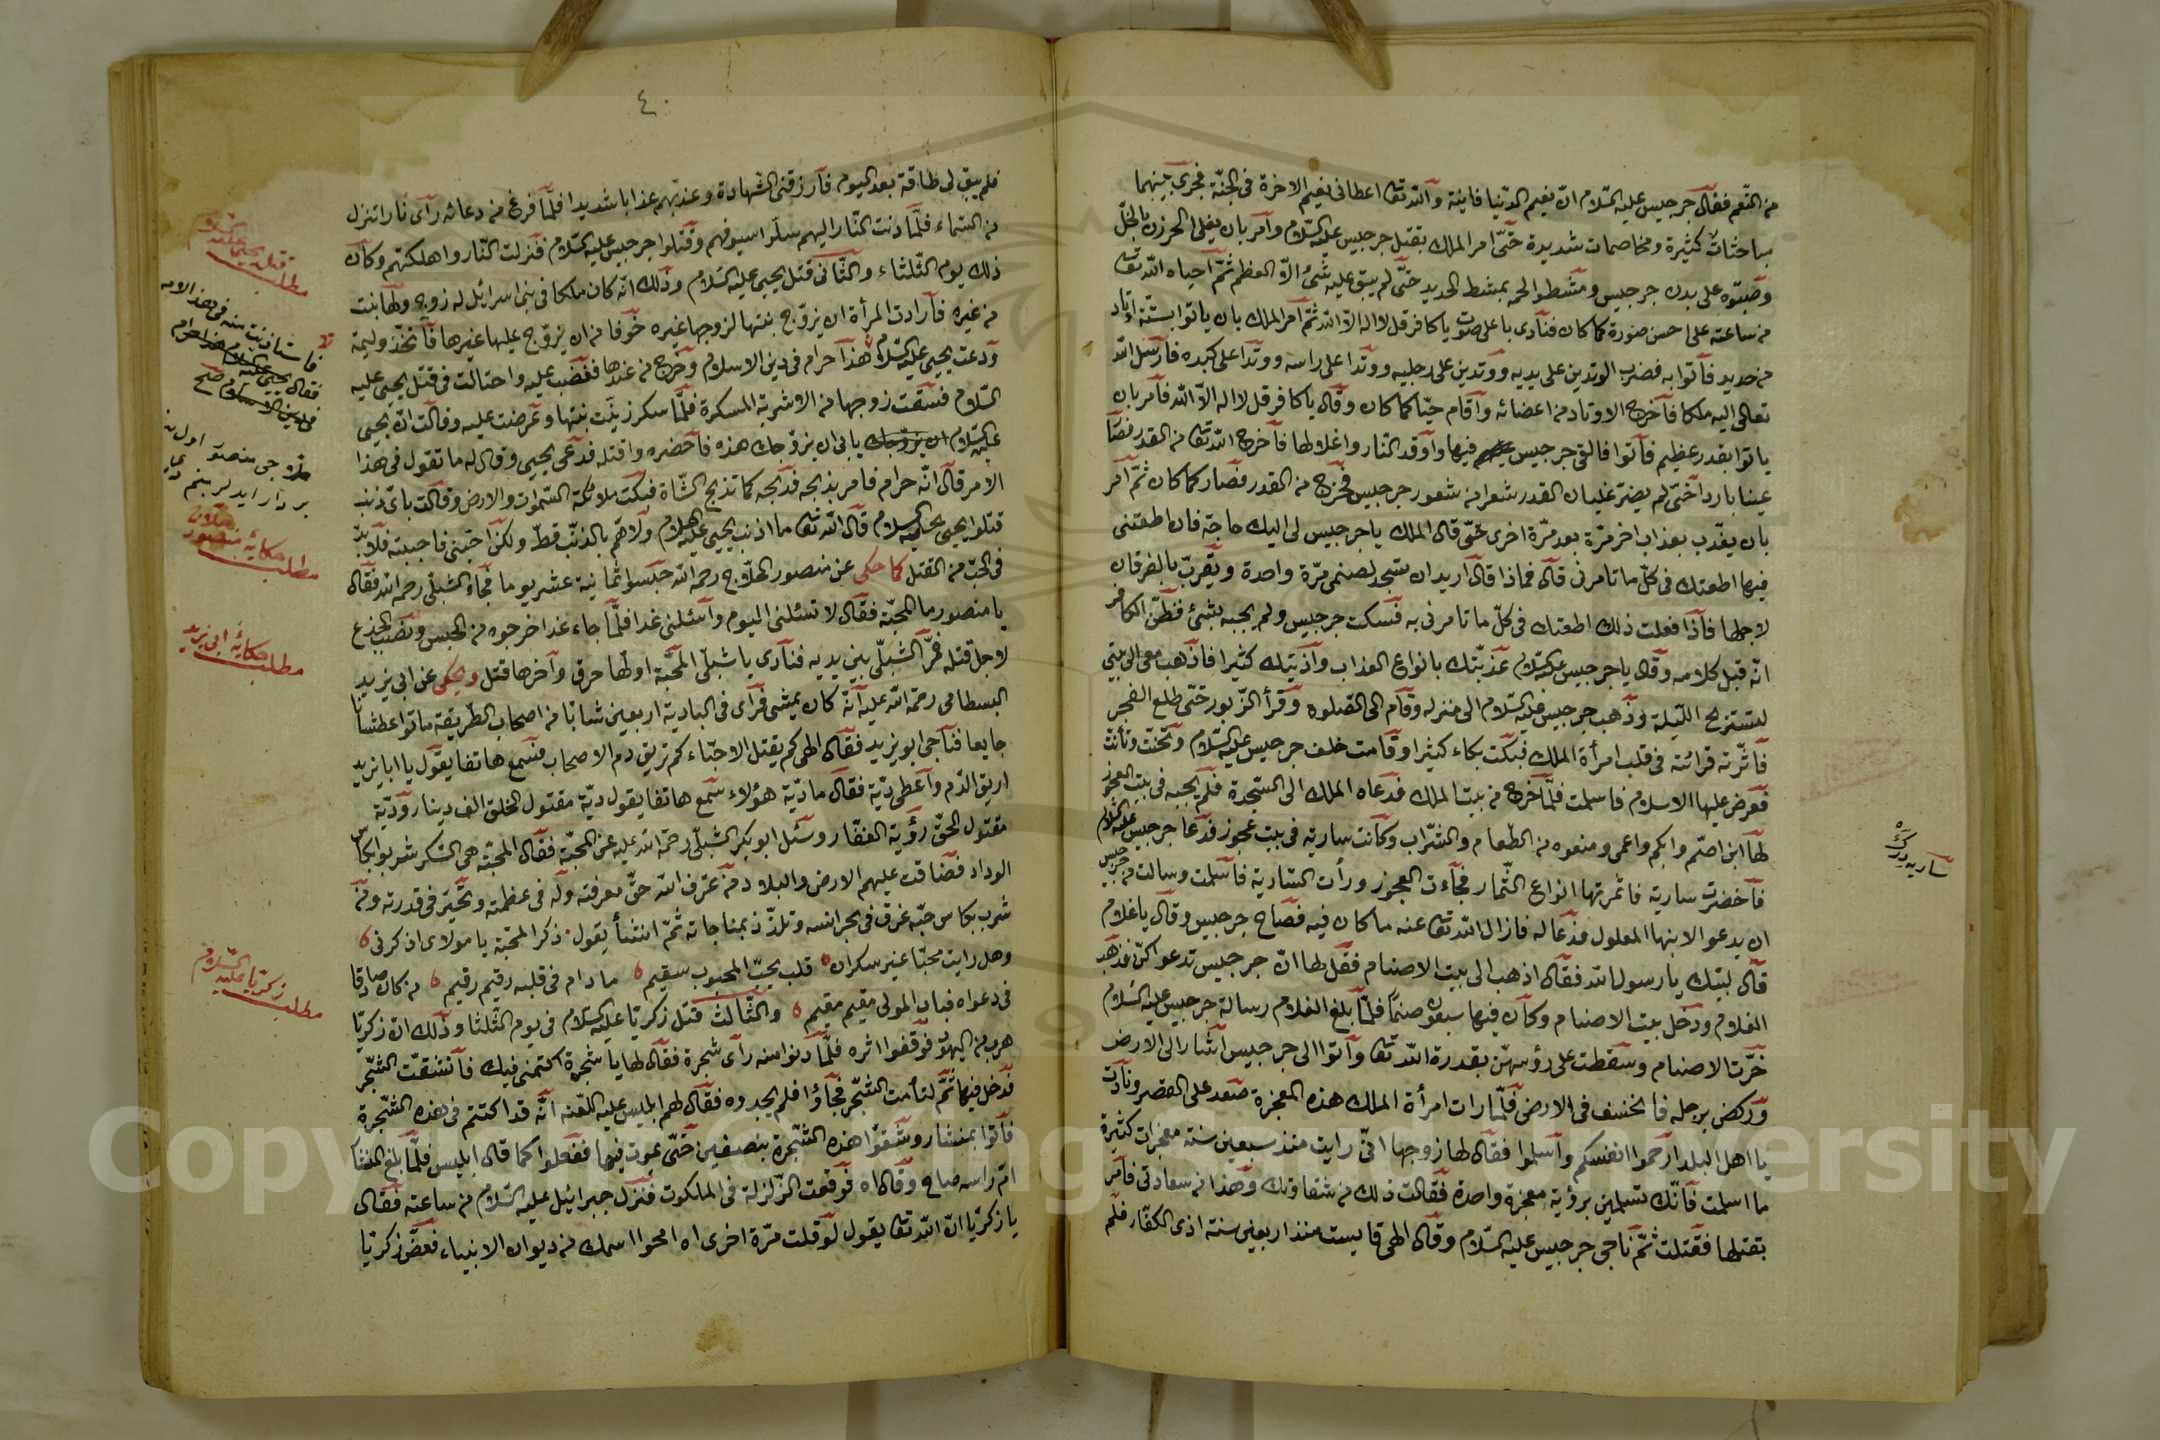 من النعم فقال جرجيس عليه السّلام انّ نعيم الدّنيا فانية والله تعا اعطانى نعيم الاخرة فى الجنّة فجرى بينهما
مباحثات كثيرة ومخاصمات شديدة حتّى امر الملك بقتل جرجيس عليه السّلام وآمر بان يغلى الخردل بالخلّ
وصبّوه على بدن جرجيس ومشطوا لحمه بمشط الحديد حتّى لم يبق عليه شئ الّا العظم ثمّ احياه الله تعا
من ساعته على احسن صورة كما كان فنادى باعلى صوت يا كافر قل لا اله الّا الله ثمّ آمر الملك بان ياتوا بستّة اوتاد
من حديد فآتوا به فضرب الوتدين على يديه ووتدين على رجليه ووتدا على راسه ووتدا على كبده فارسل الله
تعالى اليه ملكا فآخرج الاوتاد من اعضائه وآقام حيّا كما كان وقال يا كافر قل لا اله الّا الله فآمر بان
ياتوا بقدر عظيم فآتوا فالقى جرجيس فيها وآوقد النّار واغلاها فآخرج الله تعا من القدر فصا
عينا باردا حتّى لم يضرّ غليان القدر شعرا من شعور جرجيس فخرج من القدر فصار كما كان ثمّ آمر
بان يعذّب بعذاب اخر مرّة بعد مرّة اخرى حتّى قال الملك يا جرجيس لى اليك حاجة فان اطعتنى
فيها اطعتك فى كلّ ما تامرنى قال فماذا قال آريد ان تسجد لصنمى مرّة واحدة وتقرّب بالقربان
لاجلها فآذا فعلت ذلك اطعتك فى كلّ ما تامرنى به فسكت جرجيس ولم يجبه بشئ فظنّ الكافر
انّه قبل كلامه وقال يا جرجيس عليه السّلام عذّبتك بانواع العذاب وآذيتك كثيرا فاذهب معى الى بيتى
لتستريح اللّيلة وذهب جرجيس عليه السّلام الى منزله وقام الى الصّلوة وقرأ الزّبور حتّى طلع الفجر
فآثّرته قرائته فى قلب امرأة الملك فبكت بكاء كثيرا وقامت خلف جرجيس عليه السّلام
فعرض عليها الاسلام فاسلمت فلمّا خرج من بيت الملك فدعاه الملك الى السّجدة فلم يجبه فى بيت العجوز
لها ابن اصمّ وابكم واعمى ومنعوه من الطّعام والشّراب وكانت سارية فى بيت عجوز فدعا جرجيس عليه السّلام
فآخضرت سارية فاثمرتها انواع الثّمار فجآءت العجوز ورأت السّارية فآسلمت وسالت من جرجيس
ان يدعو لابنها المعلول فدعا له فازال الله تعا عنه ما كان فيه فصاح جرجيس وقال يا غلام
قال لبّيك يا رسول الله فقال اذهب الى بيت الاصنام فقل لها انّ جرجيس تدعوكنّ فذهب
الغلام ودخل بيت الاصنام وكان فيها سبعون صنما فلمّا بلغ الغلام رسالة جرجيس عليه السّلام
خرّت الاصنام وسقطت على رؤسهنّ بقدرة الله تعا وآتوا الى جرجيس آشار الى الارض
وركض برجله فانخسف فى الارض فلمّا رات امرأة الملك هذه المعجزة صعد على القصر ونادت
يا اهل البلد ارحموا انفسكم وآسلموا فقال لها زوجها انّى رايت منذ سبعين سنة معجزات كثيرة
ما اسلمت فآنّك تسلمين برؤية معجزة واحدة فقالت ذلك من شقاوتك وهذا من سعادتى فآمر
بقتلها فقتلت ثمّ ناجى جرجيس عليه السّلام وقال الهى قاسيت منذ اربعين سنة اذى الكفّار فلم
ساريه ديرك
٤٠
فلم يبق لى طاقة بعد اليوم فآرزقنى الشّهادة وعذّبهم عذابا شديدا فلمّا فرغ من دعائه رآى نارا تنزل
من السّماء فلمّا دنت النّار اليهم سلّوا سيوفهم وقتلوا جرجيس عليه السّلام فنزلت النّار واهلكتهم وكان
ذلك يوم الثّلثاء والثّانى قتل يحيى عليه السّلام وذلك انّه كان ملكا فى بنى اسرائل له زوج ولها بنت
من غيره فآرادت المرأة ان يزوّج بنتها لزوجها غيره خوفا من ان يزوّج عليها غيرها فآتّخذ وليمة
ودعت يحيى عليه السّلام هذا حرام فى دين الاسلام وخرج من عندها فغضب عليه واحتالت فى قتل يحيى عليه
السّلام فسقت زوجها من الاشربة المسكرة فلمّا سكر زيّنت بنتها وعرضت عليه وقالت انّ يحيى
عليه السّلام يابى ان يزوّجك هذه فآحضره واقتله فدعى يحيى وقال له ما تقول فى هذا
الامر قال انّه حرام فامر بذبحه فذبحه كما تذبح الشّاة فبكت ملائكة السّموات والارض وقالت باىّ ذنب
قتلوا يحيى عليه السلام قال الله تعا ما اذنب يحيى عليه السّلام ولاهمّ بالذّنب قطّ ولكن احبّنى فاحببته فلا بدّ
فى الحبّ من القتل كما حكى عن منصور الحلّاج رحمه الله حبسوا ثمانية عشر يوما فجاء الشبلى رحمه الله فقال
يا منصور ما المحبّة فقال لا تسئلنى اليوم وآسئلنى غدا فلمّا جاء غدا خرجوه من الحبس ونصب الجذع
لاجل قتله فمرّ الشبلىّ بين يديه فنادى يا شبلى المحبّة اوّلها حرق وآخرها قتل وحكى عن ابى يزيد
البسطامى رحمة الله عليه انّه كان يمشى فرآى فى البادية اربعين شابّا من اصحاب الطّريقة ماتوا عطشانا
جايعا فناجى ابو يزيد فقال الهى كم يقتل الاحبّاء كم تريق دم الاصحاب فسمع هاتفا يقول يا ابا يزيد
اريق الدّم وآعطى ديّة فقال ما ديّة هؤلاء سمع هاتفا يقول ديّة مقتول الخلق الف دينار وديّة
مقتول الحقّ رؤية الغفّار وسئل ابو بكر الشبلى رحمة الله عليه عن المحبّة فقال المحبّة هى السّكر شربوا بكاس
الوداد فضاقت عليهم الارض والبلاد من عرف الله حقّ معرفته وله فى عظمته وتحيّر فى قدرته ومن
شرب بكاس حبّه غرق فى بحر انسه وتلذّذ بمناجاته ثمّ انشأ يقول ذكر المحبّة يا مولاى اذكرنى
وهل رايت محبّا غير سكران قلب يحبّ المحبوب سقيم ما دام فى قلبه رقيم رقيم من كان صادقا
فى دعواه فباب المولى مقيم مقيم والثّالث قتل زكريّا عليه السّلام فى يوم الثّلثا وذلك انّ زكريّا
هرب من اليهود فوقفوا اثره فلمّا دنوا منه رآى شجرة فقال لها يا شجرة اكتمنى فيك فآنشقّت الشّجر
فدخل فيها ثمّ لتأمت الشّجر فجآؤا فلم يجدوه فقال لهم ابليس عليه اللّعنه انّه قد اكتتم فى هذه الشّجرة
فآتوا بمنشار وشقّوا هذه الشّجرة بنصفين حتّى يموت فيها ففعلوا كما قال ابليس فلمّا بلغ المنشا
امّ راسه صاح وقال اه فوقعت الزّلزلة فى الملكوت فنزل جبرائيل عليه السّلام من ساعته فقال
يا زكريّا انّ الله تعا يقول لو قلت مرّة اخرى اه امحوا اسمك من ديوان الانبياء فعضّ زكريّا
مطلب قتل يحيى عليه السّلام
فقال يحيى عليه السّلام هذا حرام
فى دين الاسلام صح
مطلب حكاية منصور حلاج
مطلب حكاية ابى يزيد
مطلب زكريّا عليه السّلام
Copyright © King Saud University